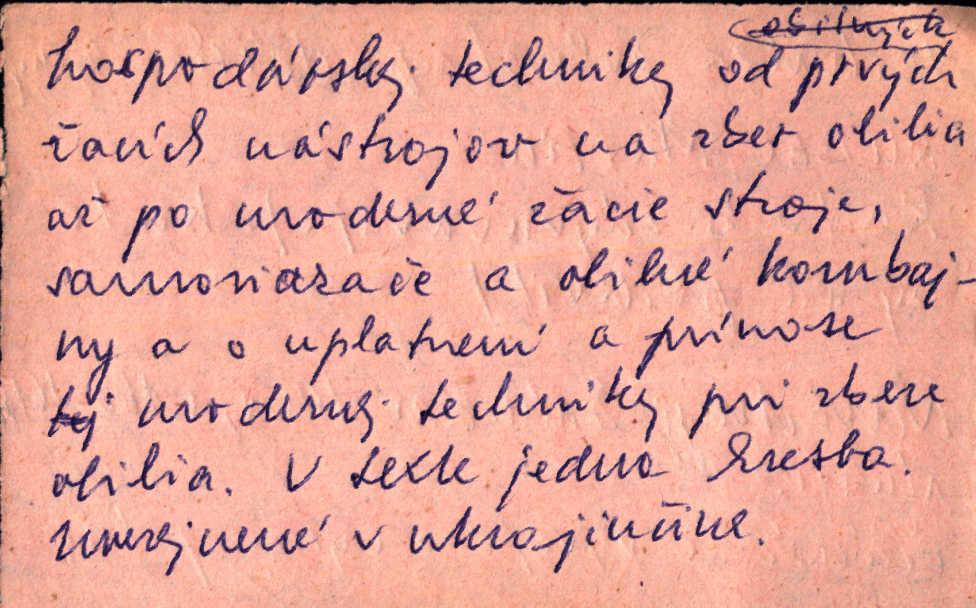 obilných
hospodárskej techniky od prvých
žacích nástrojov na zber obilia
až po moderné žacie stroje,
samoviazače a obilné kombaj-
ny a o uplatnení a prínose
tej modernej techniky pri zbere
obilia. V texte jedna kresba.
Uverejnené v ukrajinčine.